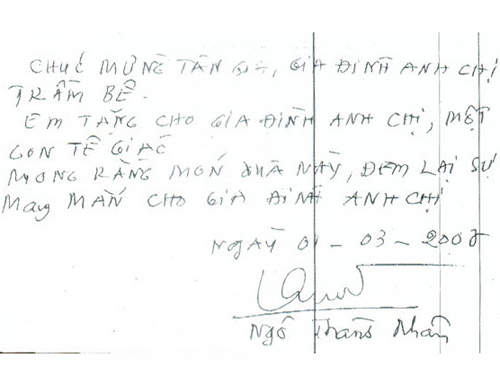 CHÚC MỪNG TÂN GIA, GIA ĐÌNH ANH CHỊ
TRẦM BÊ.
EM TẶNG CHO GIA ĐÌNH ANH CHỊ, MỘT
CON TÊ GIÁC
MONG RẰNG MÓN QUÀ NÀY, ĐEM LẠI SỰ
May MẮN CHO GIA ĐÌNH ANH CHỊ
NGÀY 01 - 03 - 2008
Ngô Thanh Nhàn